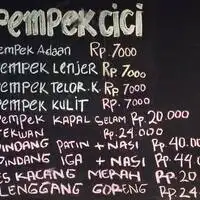 PEMPEK CICI
EMPEK ADAAN Rp. 7000
EMPEK LENJER Rp 7000
EMPEK TELOR.K. Rp 7000
EMPEK KULIT Rp. 7000
EMPEK KAPAL SELAM Rp. 20.000
EKWAN Rp. 24.000
INDANG PATIN + NASI Rp 40.00
INDANG IGA + NASI Rp. 44.0
ES KACANG MERAH Rp. 20
LENGGANG GORENG Rp. 24